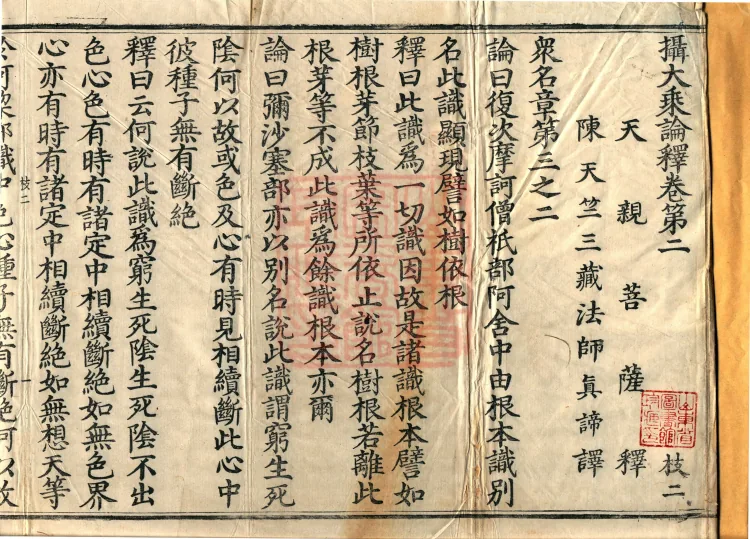 攝大乘論釋卷第二 枝二
天親菩薩釋
陳天竺三藏法師眞諦譯
衆名章第三之二
論曰復次摩訶僧祇部阿含中由根本識別
名此識顯現譬如樹依根
釋曰此識爲一切識因故是諸識根本譬如
樹根芽節枝葉等所依止說名樹根若離此
根芽等不成此識爲餘識根本亦爾
論曰彌沙塞部亦以別名說此識謂窮生死
陰何以故或色及心有時見相續斷此心中
彼種子無有斷絶
釋曰云何說此識爲窮生死陰生死陰不出
色心色有時有諸定中相續斷絶如無色界
心亦有時有諸定中相續斷絶如無想天等
枝二
識中色心種子無有斷絶何以故
山東省圖書館